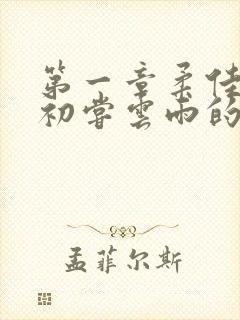 第一章柔佳
初尝雲雨的
孟菲尔斯